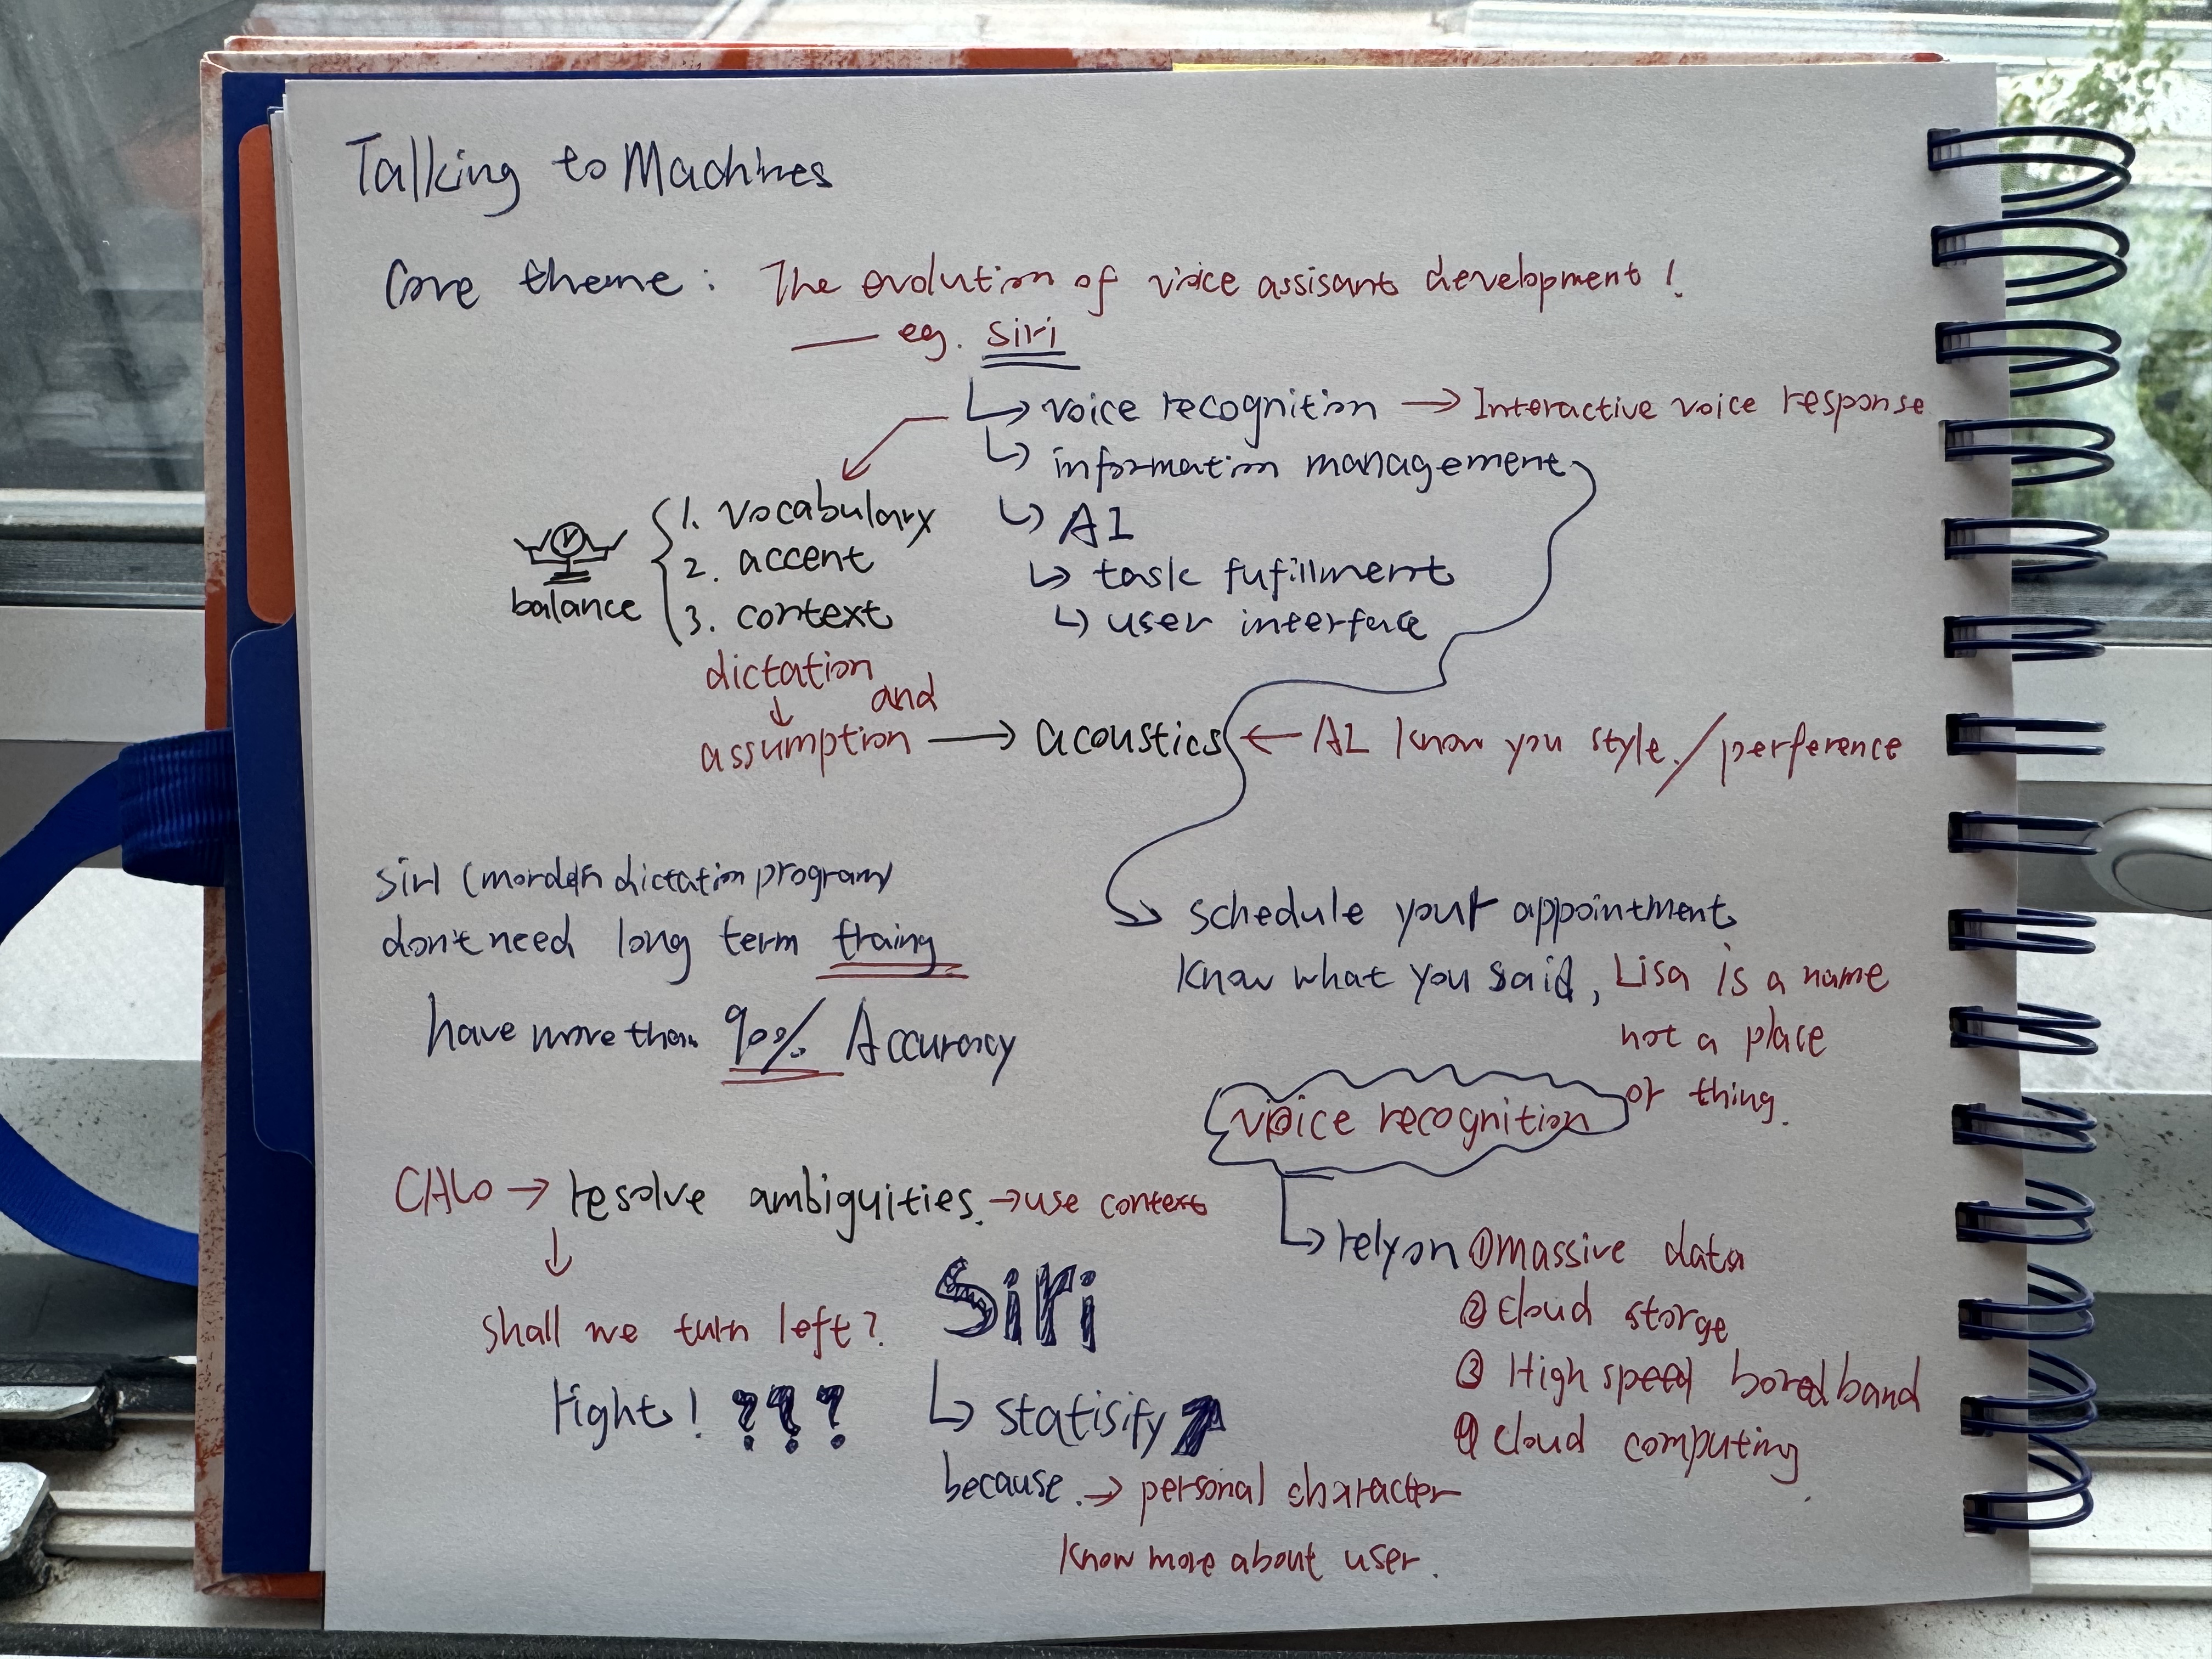 Talking to Machines
Core theme: The evolution of voice assisant development!
— eg. Siri
↳ voice recognition → Interactive voice response
↳ information management
↳ AI
↳ task fufillment
↳ user interface
1. vocabulary
2. accent
3. context
balance
dictation
and
↓
assumption → acoustics ← AI know you style. / perference
siri (mordern dictation program)
don't need long term traing
have more than 90% Accuracy
schedule your appointment
know what you said, Lisa is a name
not a place
or thing.
voice recognition
↳ rely on ① massive data
② cloud storge
③ High speed boredband
④ cloud computing
CALO → resolve ambiguities. → use context
↓
shall we turn left?
right! ???
Siri
↳ statisify ↗
because. → personal character
know more about user.